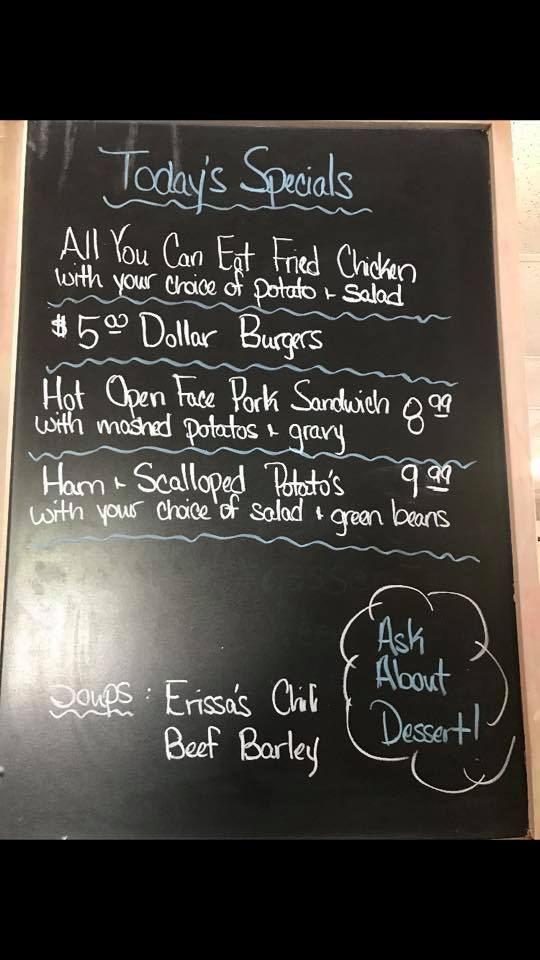 Today's Specials
All You Can Eat Fried Chicken
with your choice of potato + salad
$5.00 Dollar Burgers
Hot Open Face Pork Sandwich 8.99
with mashed potatos + gravy
Ham + Scalloped Potato's 9.99
with your choice of salad + green beans
Soups: Erissa's Chili
Beef Barley
Ask
About
Dessert!